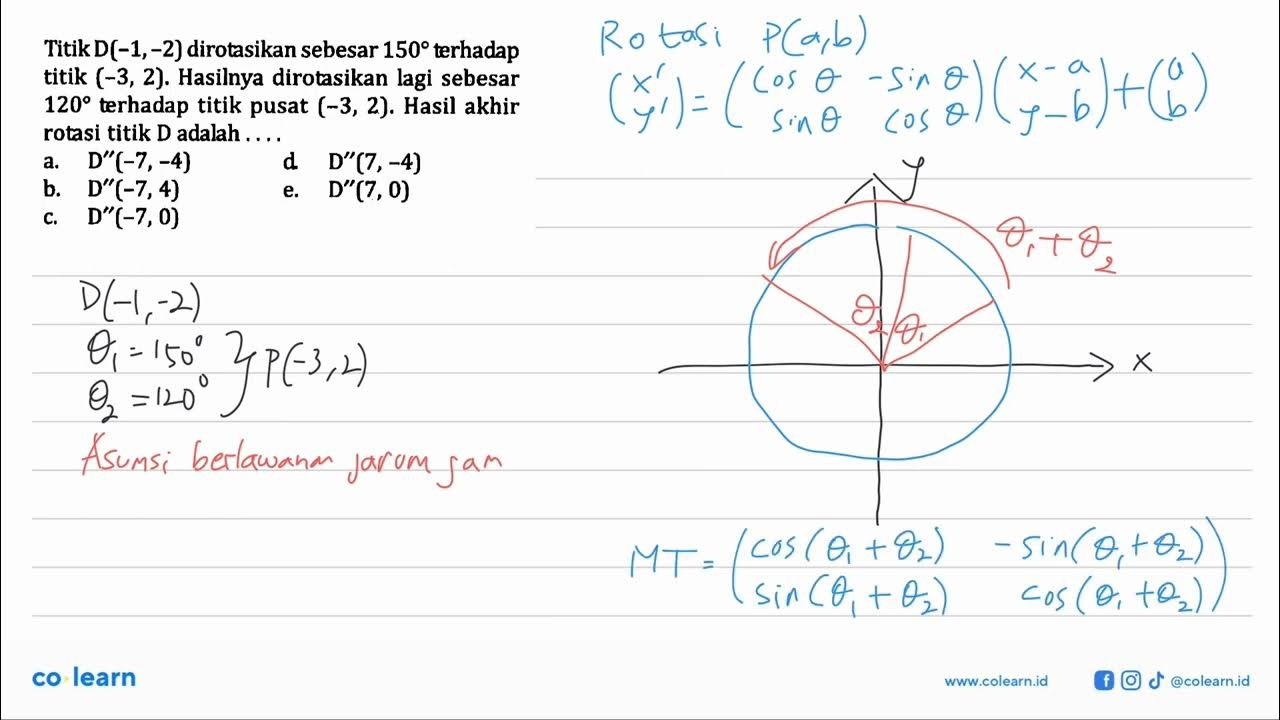 Titik D(−1, −2) dirotasikan sebesar 150° terhadap
titik (−3, 2). Hasilnya dirotasikan lagi sebesar
120° terhadap titik pusat (−3, 2). Hasil akhir
rotasi titik D adalah . . . .
a. D″(−7, −4)
d. D″(7, −4)
b. D″(−7, 4)
e. D″(7, 0)
c. D″(−7, 0)
Rotasi P(a,b)
(x′ y′) = (cos θ −sin θ sin θ cos θ)(x−a y−b)+(a b)
y
θ₁ + θ₂
θ₂ θ₁
x
D(−1,−2)
θ₁ = 150°
θ₂ = 120°
} P(−3,2)
Asumsi berlawanan jarum jam
MT = (cos(θ₁ + θ₂) −sin(θ₁ + θ₂) sin(θ₁ + θ₂) cos(θ₁ + θ₂))
co·learn
www.colearn.id
@colearn.id